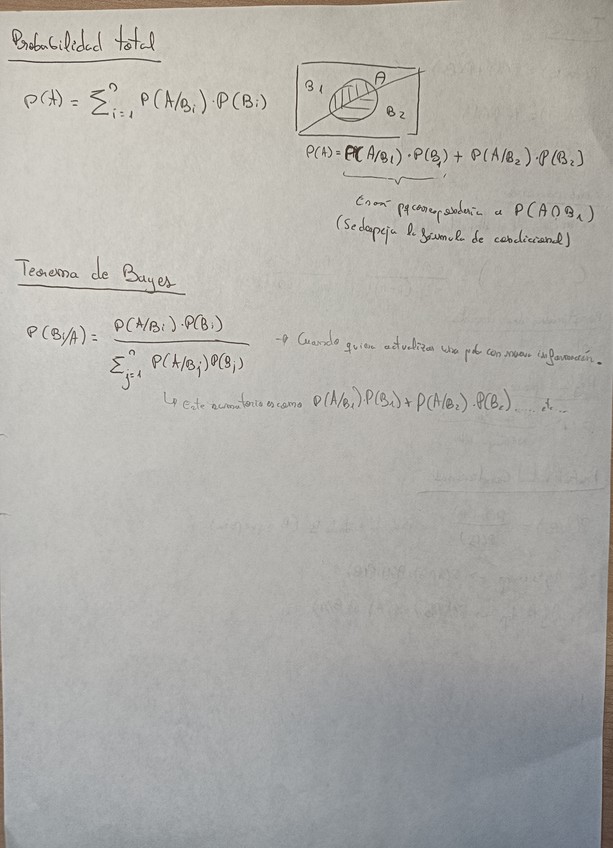 Probabilidad total
P(A) = ∑ⁿᵢ₌₁ P(A/Bᵢ)·P(Bᵢ)
B₁ A
B₂
P(A) = P(A/B₁)·P(B₁) + P(A/B₂)·P(B₂)
correspondería a P(A∩B₁)
(Se despeja la fórmula de condicional)
Teorema de Bayes
P(Bᵢ/A) = P(A/Bᵢ)·P(Bᵢ) / ∑ⁿⱼ₌₁ P(A/Bⱼ)P(Bⱼ)
→ Cuando quien actualizas una pb con nueva información.
↳ Este sumatorio es como P(A/B₁)·P(B₁)+P(A/B₂)·P(B₂)......